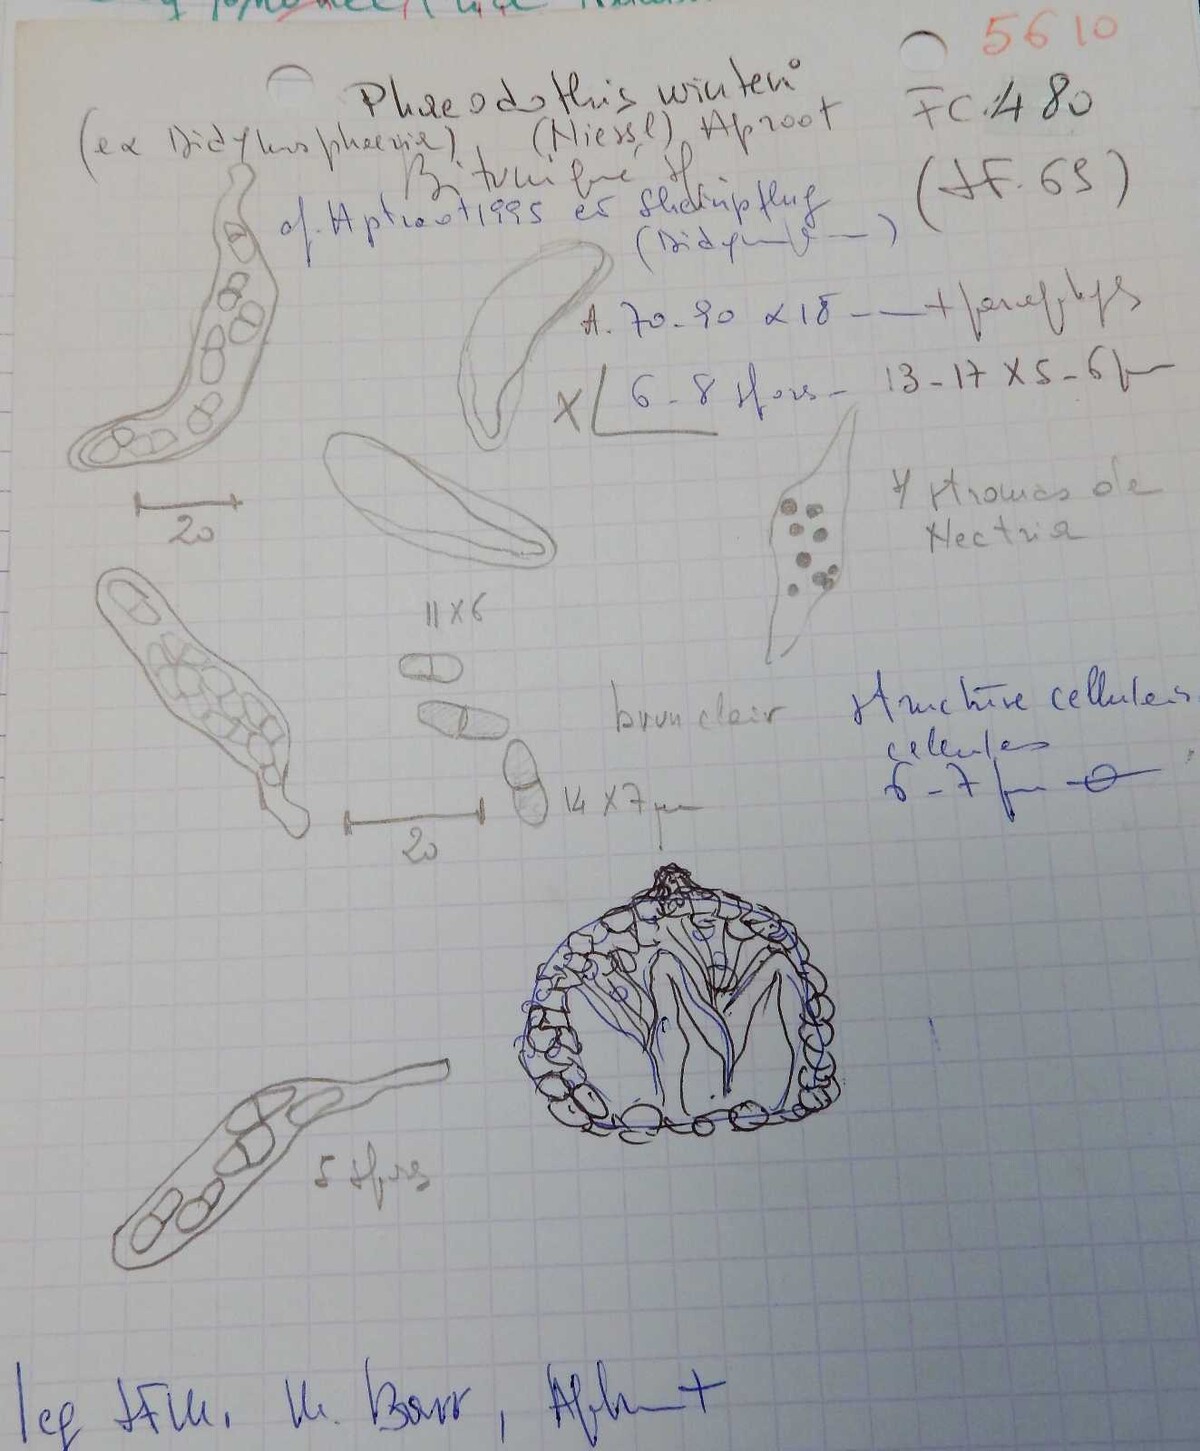 5610
Phaeodothis winteri
FC.480
(ex Didymosphaeria) (Niessl) Aptroot
Bituniqué
(JF. 69)
cf. Aptroot 1995 et Scheinpflug
A. 70-90 x 18 + paraphyses
X 6-8 spores 13-17 X 5-6 µm
stromas de
Nectria
20
11 X 6
brun clair
structure cellulaire
cellules
6-7 µm
14 X 7 µm
20
5 spores
leg JFM. M. Barr, Aptroot